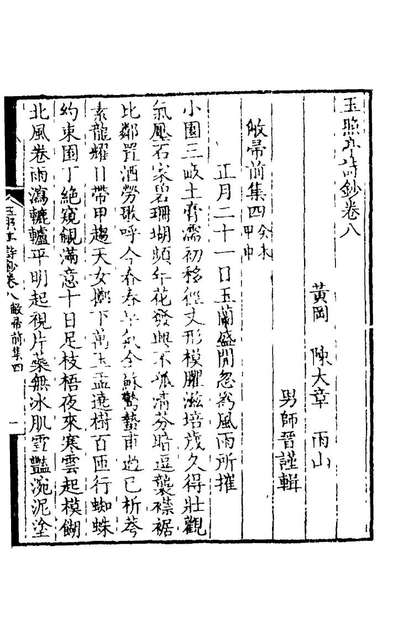 玉照亭詩鈔卷八
黃岡 陳大章 雨山
男師晉謹輯
敝帚前集四癸未甲申
正月二十一日玉蘭盛開忽為風雨所摧
小園三畝土膏濡初移僅丈形模臞滋培歲久得壯觀
氣壓石家碧珊瑚頻年花發興不孤清芬暗逗襲襟裾
比鄰置酒勞歌呼今春春氣全蘇驚蟄甫過已析莩
素龍耀日帶甲趨天女擲下萬玉盂遶樹百匝行蜘蛛
約束園丁絕窺覦滿意十日足枝梧夜來寒雲起模餬
北風卷雨瀉轆轤平明起視片藥無冰肌雪豔涴泥塗
玉照亭詩鈔卷八 敝帚前集四 一